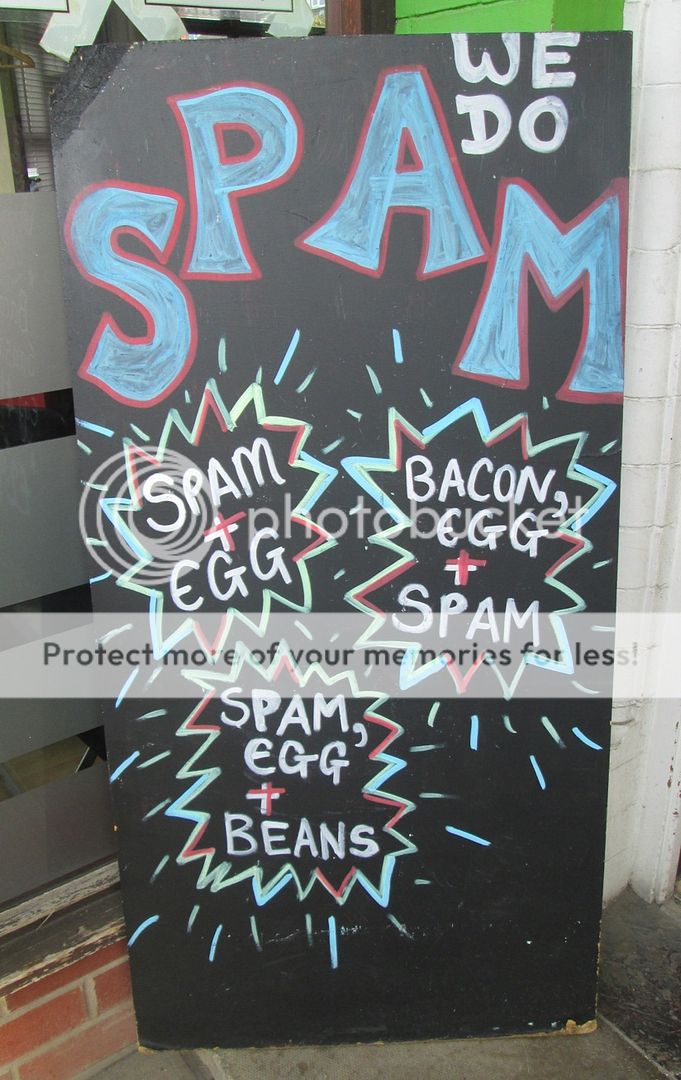 WE
DO
SPAM
SPAM
+
EGG
BACON,
EGG
+
SPAM
photobucket
Protect more of your memories for less!
SPAM,
EGG
+
BEANS